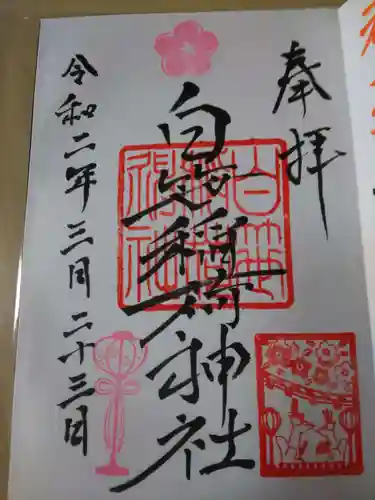 奉拝
白笹稲荷神社
令和二年三月二十三日